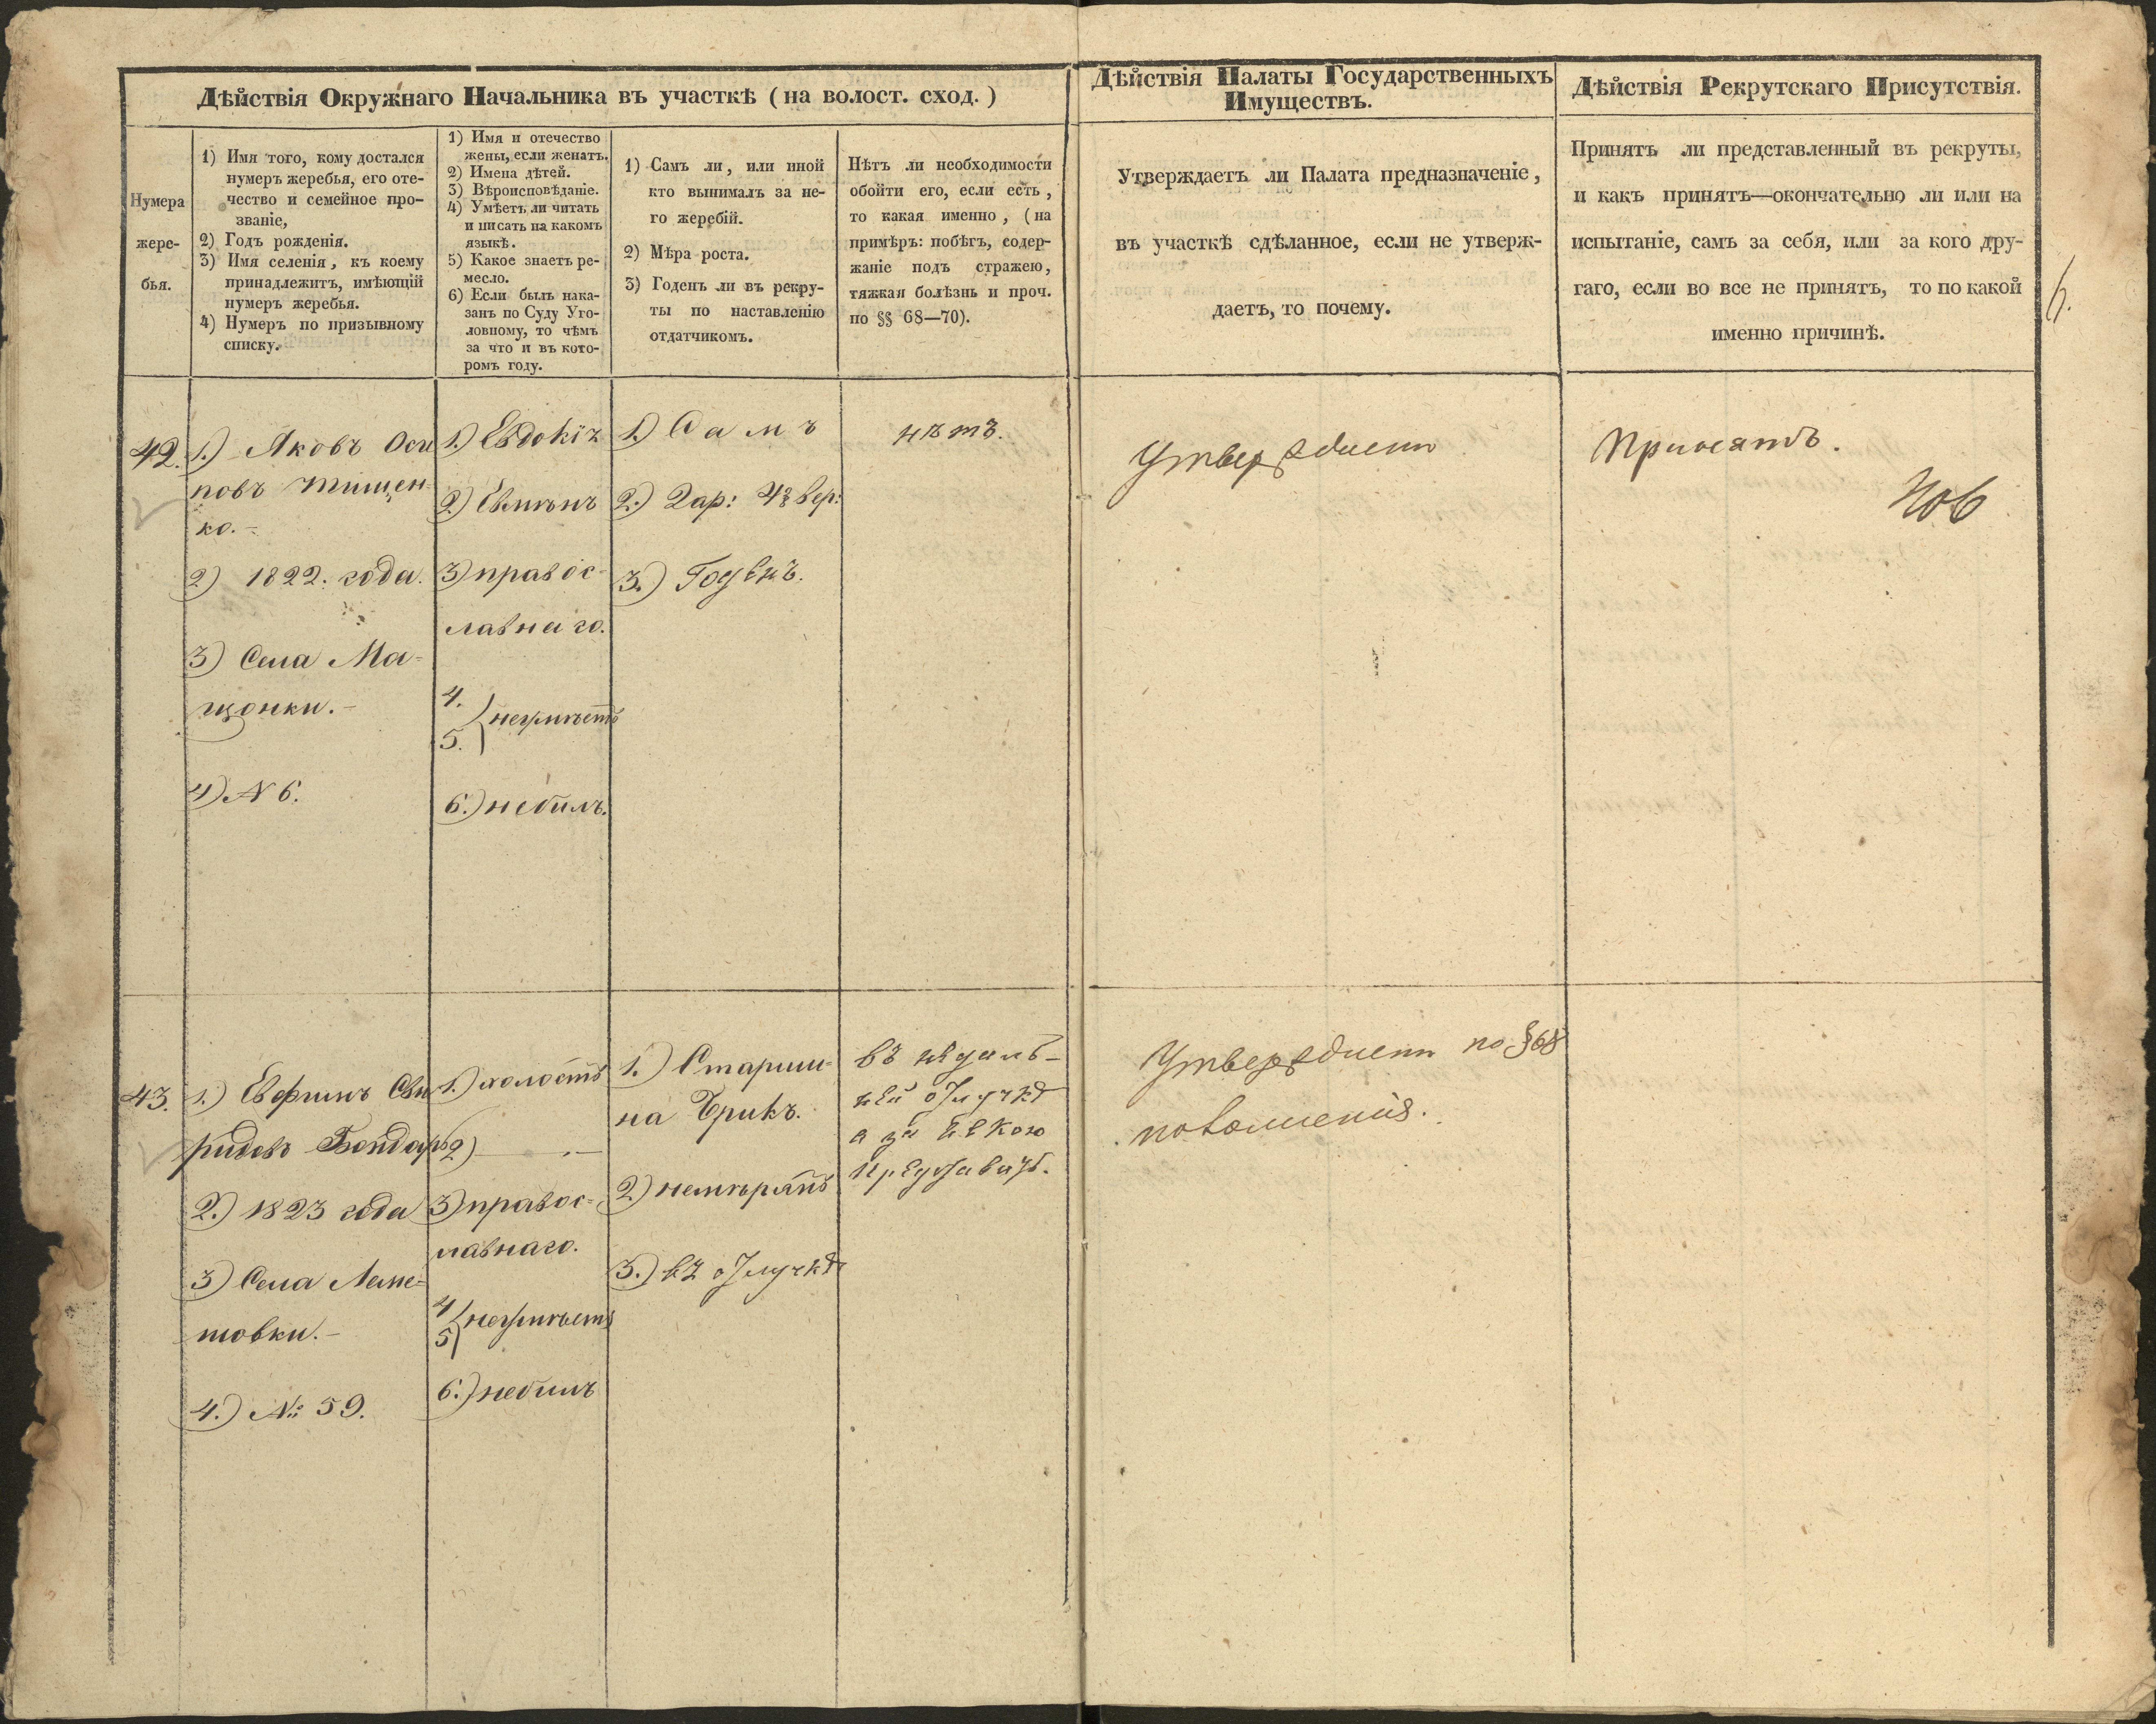 Дѣйствія Окружнаго Начальника въ участкѣ (на волост. сход.)
Дѣйствія Палаты Государственныхъ
Имуществъ.
Дѣйствія Рекрутскаго Присутствія.
Нумера
жере-
бья.
1) Имя того, кому достался
нумеръ жеребья, его оте-
чество и семейное про-
званіе,
2) Годъ рожденія.
3) Имя селенія, къ коему
принадлежитъ, имѣющій
нумеръ жеребья.
4) Нумеръ по призывному
списку.
1) Имя и отечество
жены, если женатъ.
2) Имена дѣтей.
3) Вѣроисповѣданіе.
4) Умѣетъ ли читать
и писать на какомъ
языкѣ.
5) Какое знаетъ ре-
месло.
6) Если былъ нака-
занъ по Суду Уго-
ловному, то чѣмъ
за что и въ кото-
ромъ году.
1) Самъ ли, или иной
кто вынималъ за не-
го жеребій.
2) Мѣра роста.
3) Годенъ ли въ рекру-
ты по наставленію
отдатчикомъ.
Нѣтъ ли необходимости
обойти его, если есть,
то какая именно, (на
примѣръ: побѣгъ, содер-
жаніе подъ стражею,
тяжкая болѣзнь и проч.
по §§ 68—70).
Утверждаетъ ли Палата предназначеніе,
въ участкѣ сдѣланное, если не утверж-
даетъ, то почему.
Принятъ ли представленный въ рекруты,
и какъ принятъ—окончательно ли или на
испытаніе, самъ за себя, или за кого дру-
гаго, если во все не принятъ, то по какой
именно причинѣ.
6.
42.
1.) Яковъ Оси
повъ Тищен-
ко.-
2) 1822. года.
3) Села Ма-
щонки.-
4) N 6.
1.)
2)
3) правос-
лавнаго.
4.
5. неумѣетъ
6.) небилъ.
1.) Самъ
2.) 2 ар: 4 вер:
3.) Годенъ.
нѣтъ.
Принятъ.
43.
1.) Евфимъ Сви
ридовъ Бондарь
2.) 1823 года
3) Села
товки.-
4.) №: 59.
1.) холостъ
2)
3) правос-
лавнаго.
4
5 неумѣетъ
6.) небилъ
1.) Старши-
на
2) немѣрятъ
3.) въ отлучкѣ
въ
ней отлучкѣ
а за
по §68